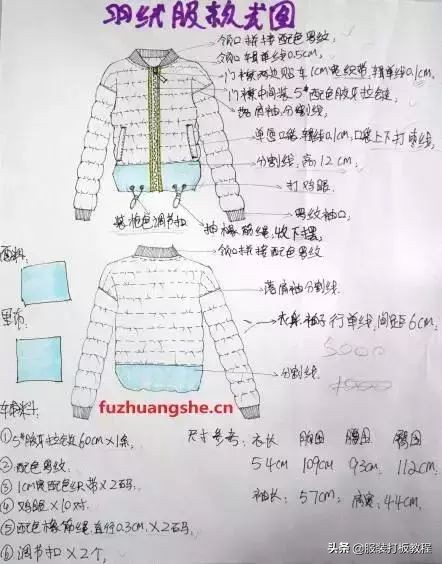 羽绒服款式图
领口拼接配色罗纹.
领口辑单线0.5cm.
门襟两边贴车1cm宽织带,辑单线0.1cm.
门襟中间装5#配色胶牙拉链.
落肩袖分割线.
单唇口袋,辑线0.1cm,口袋上下打枣线.
分割线,高12cm.
打鸡眼.
罗纹袖口.
装配色调节扣
抽橡筋绳,收下摆.
领口拼接配色罗纹.
面料:
落肩袖分割线.
里布:
衣身,袖子行单线,间距6cm.
5000
分割线.
1000
fuzhuangshe.cn
车料:
①5#胶牙拉链60cm×1条.
②配色罗纹.
③1cm宽配色织带×2码.
④鸡眼×10对.
⑤配色橡筋绳,直径0.3cm.×2码
⑥调节扣×2个.
尺寸参考: 衣长 胸围 腰围 臀围
54cm 109cm 93cm 112cm
袖长: 57cm. 肩宽: 44cm.
头条 @服装打板教程